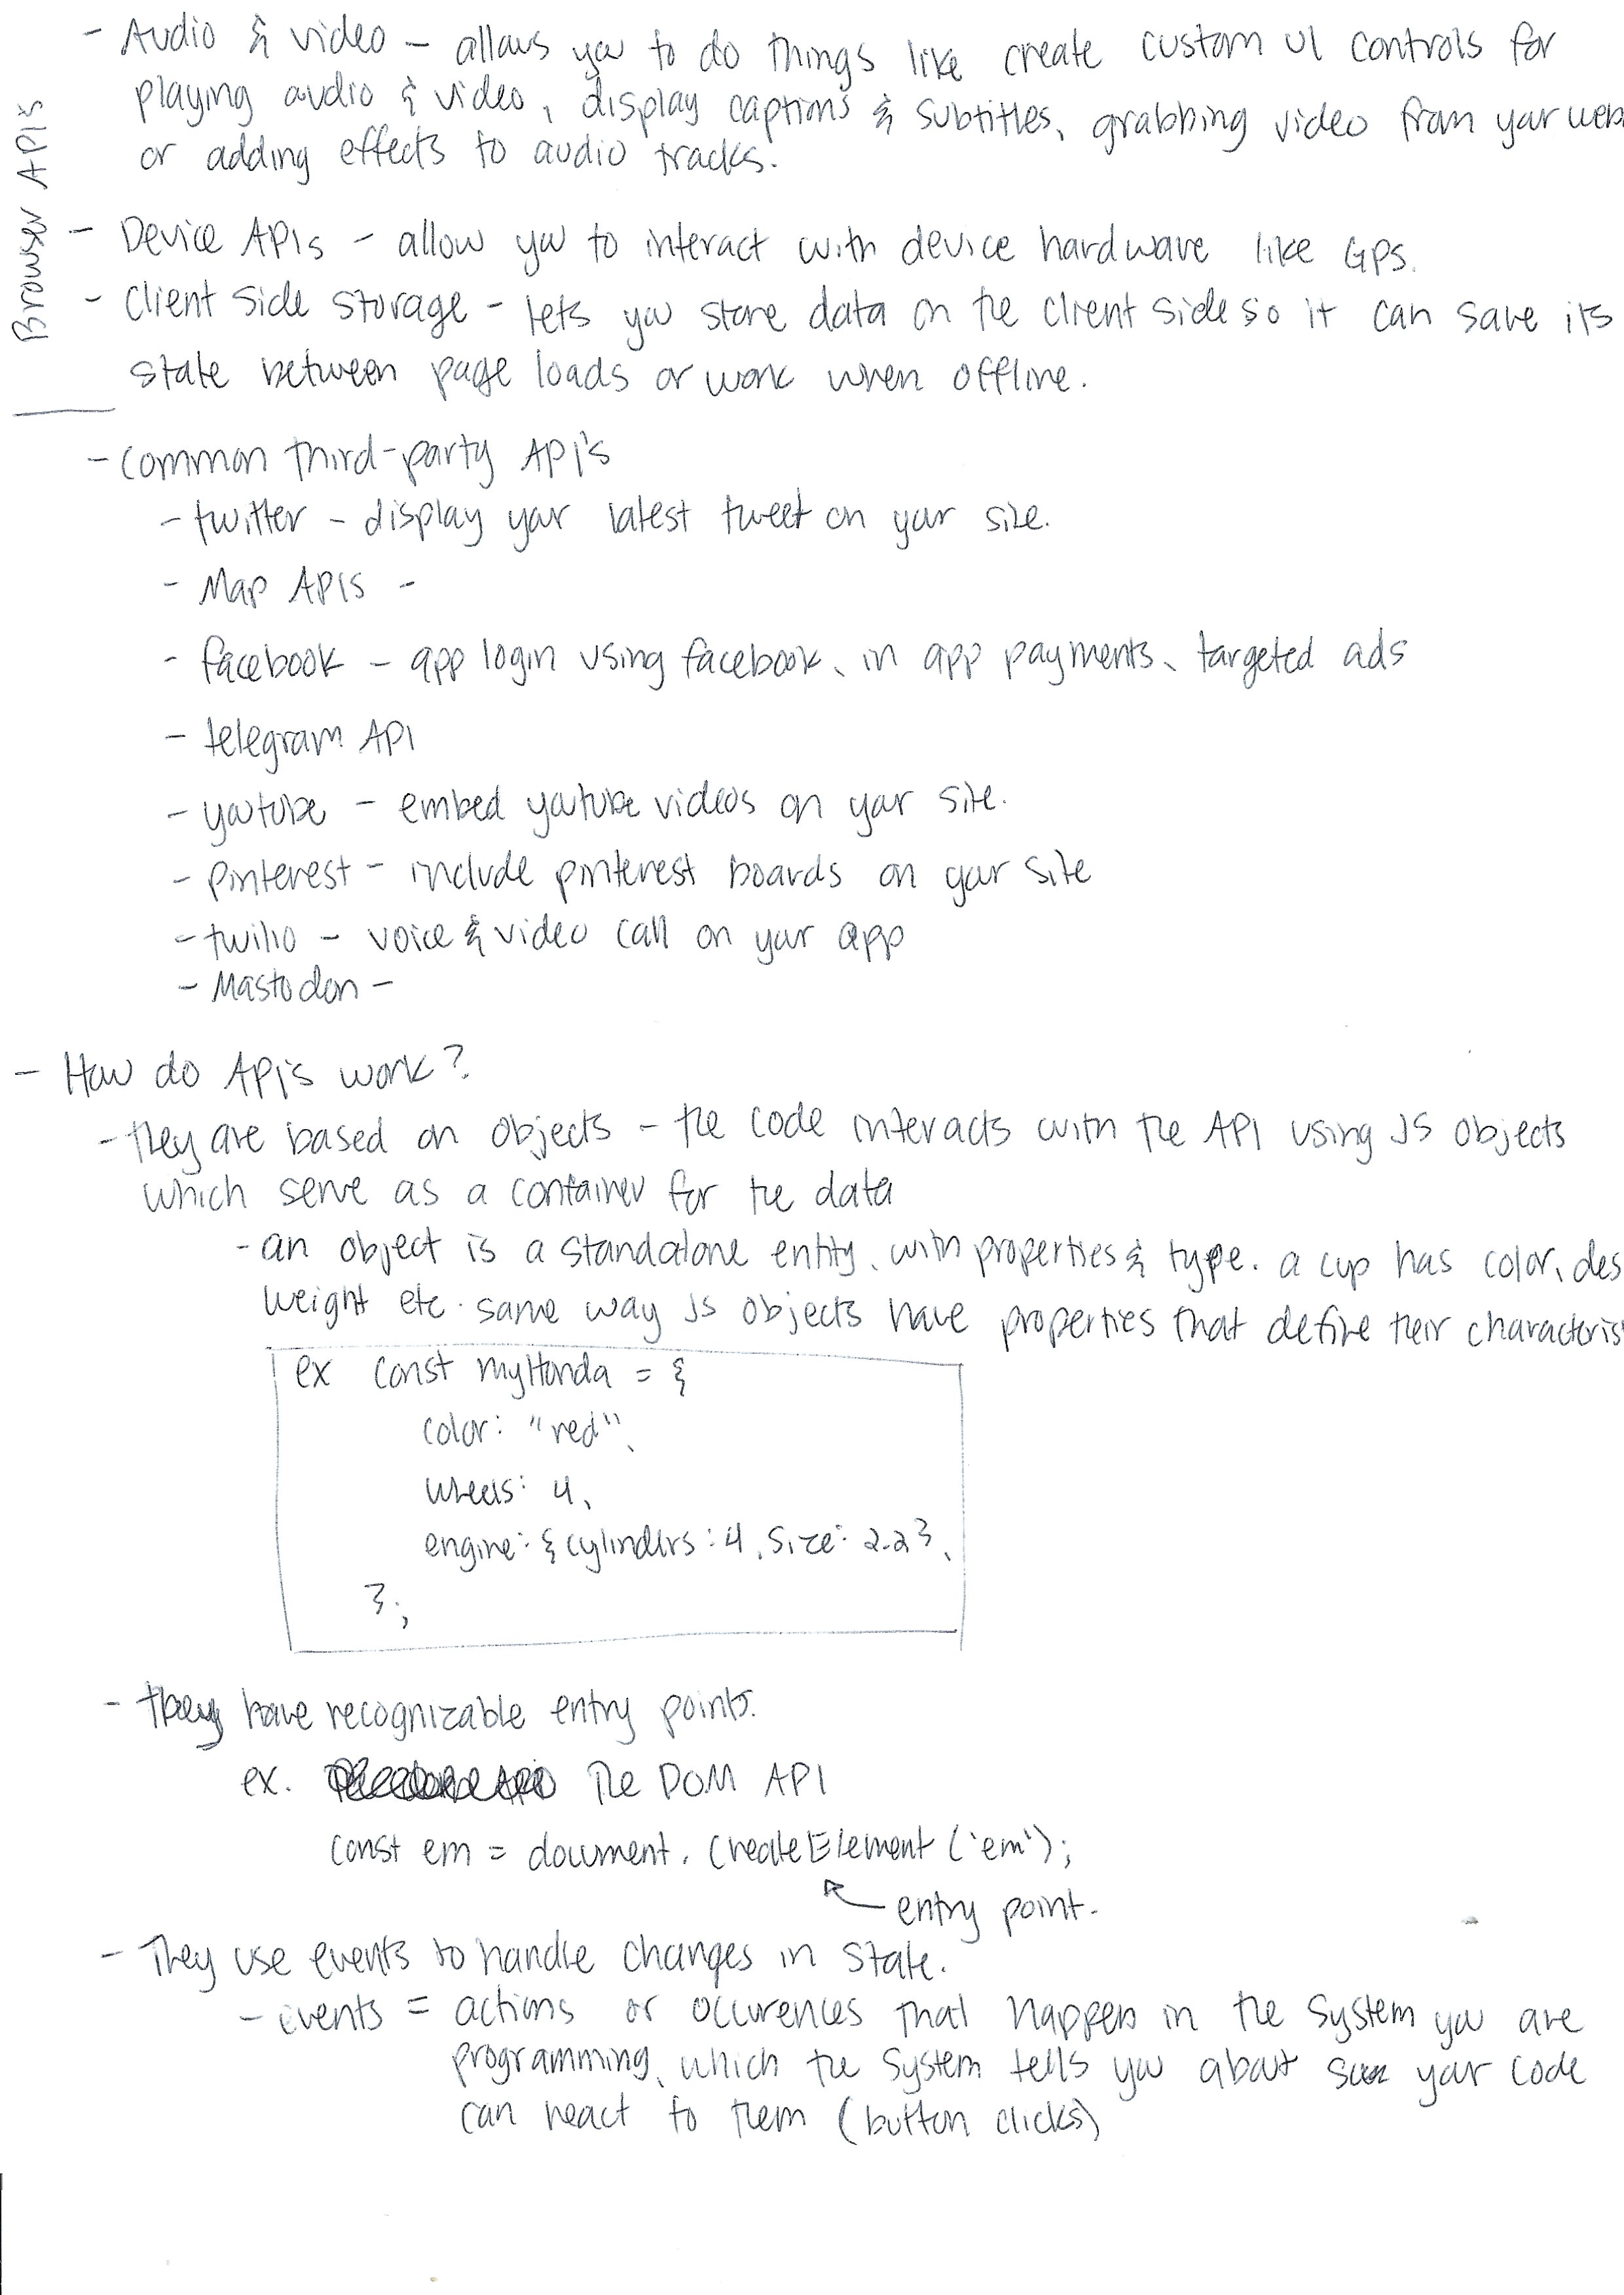 Browser APIs
- Audio & video - allows you to do things like create custom UI controls for
playing audio & video, display captions & subtitles, grabbing video from your
or adding effects to audio tracks.
- Device APIs - allow you to interact with device hardware like GPS.
- Client side storage - lets you store data on the client side so it can save its
state between page loads or work when offline.
- Common third-party API's
- twitter - display your latest tweet on your site.
- Map APIs -
- facebook - app login using facebook, in app payments, targeted ads
- telegram API
- youtube - embed youtube videos on your site.
- pinterest - include pinterest boards on your site
- twilio - voice & video call on your app
- Mastodon -
- How do API's work?
- they are based on objects - the code interacts with the API using JS objects
which serve as a container for the data
- an object is a standalone entity, with properties & type. a cup has color, des
weight etc. same way JS objects have properties that define their characteris
ex const myHonda = {
color: "red",
wheels: 4,
engine: {cylinders: 4, size: 2.2},
};
- they have recognizable entry points.
ex. The DOM API
const em = document.createElement('em');
entry point.
- They use events to handle changes in state.
- events = actions or occurences that happen in the system you are
programming, which the system tells you about your code
can react to them (button clicks)